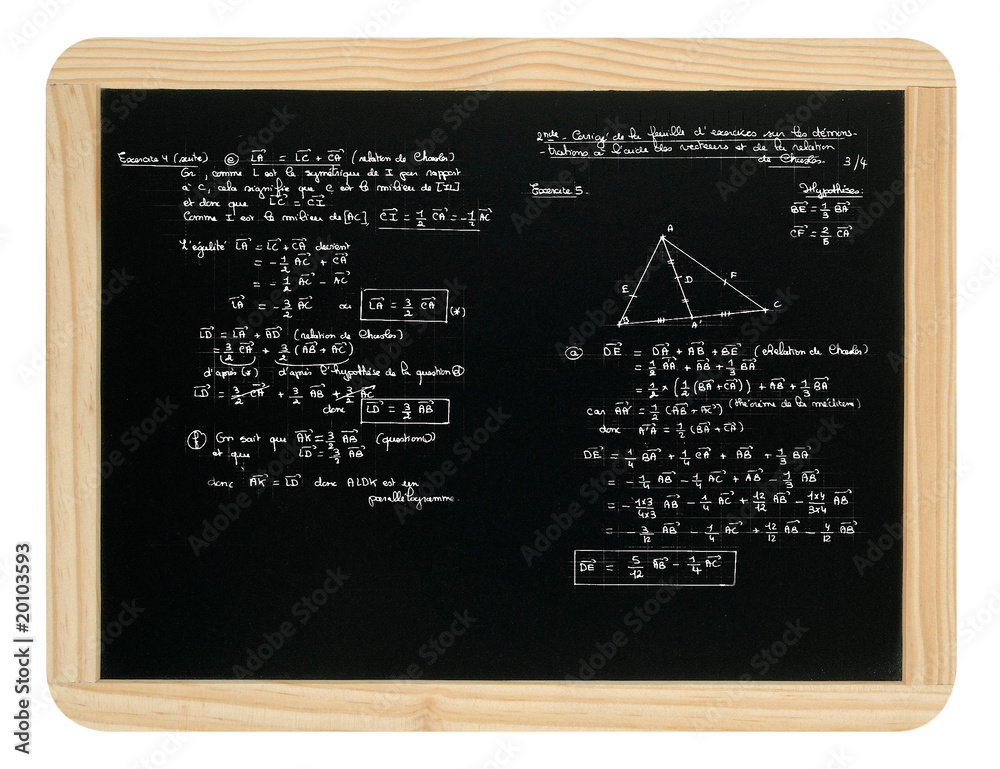 Exercice 4 (suite) e) LA⃗ = LC⃗ + CA⃗ (relation de Chasles)
Or, comme L est le symétrique de I par rapport
à C, cela signifie que C est le milieu de [IL]
et donc que LC⃗ = CI⃗
Comme I est le milieu de [AC], CI⃗ = 1/2 CA⃗ = -1/2 AC⃗
L'égalité LA⃗ = LC⃗ + CA⃗ devient
= -1/2 AC⃗ + CA⃗
= -1/2 AC⃗ - AC⃗
LA⃗ = -3/2 AC⃗ ou LA⃗ = 3/2 CA⃗ (*)
LD⃗ = LA⃗ + AD⃗ (relation de Chasles)
= 3/2 CA⃗ + 3/2 (AB⃗ + AC⃗)
d'après (*) d'après l'hypothèse de la question d)
LD⃗ = 3/2 CA⃗ + 3/2 AB⃗ + 3/2 AC⃗
donc LD⃗ = 3/2 AB⃗
f) On sait que AK⃗ = 3/2 AB⃗ (question)
et que LD⃗ = 3/2 AB⃗
donc AK⃗ = LD⃗ donc ALDK est un
parallélogramme.
2nde - Corrigé de la feuille d'exercices sur les démons-
-trations à l'aide des vecteurs et de la relation
de Chasles. 3/4
Exercice 5.
Hypothèses:
BE⃗ = 1/3 BA⃗
CF⃗ = 2/5 CA⃗
A
F
D
E
C
B
A'
a) DE⃗ = DA⃗ + AB⃗ + BE⃗ (Relation de Chasles)
= 1/2 A'A⃗ + AB⃗ + 1/3 BA⃗
= 1/2 × (1/2 (BA⃗ + CA⃗)) + AB⃗ + 1/3 BA⃗
car AA'⃗ = 1/2 (AB⃗ + AC⃗) (théorème de la médiane)
donc A'A⃗ = 1/2 (BA⃗ + CA⃗)
DE⃗ = 1/4 BA⃗ + 1/4 CA⃗ + AB⃗ + 1/3 BA⃗
= -1/4 AB⃗ - 1/4 AC⃗ + AB⃗ - 1/3 AB⃗
= -1×3/4×3 AB⃗ - 1/4 AC⃗ + 12/12 AB⃗ - 1×4/3×4 AB⃗
= -3/12 AB⃗ - 1/4 AC⃗ + 12/12 AB⃗ - 4/12 AB⃗
DE⃗ = 5/12 AB⃗ - 1/4 AC⃗
Adobe Stock | #20103593